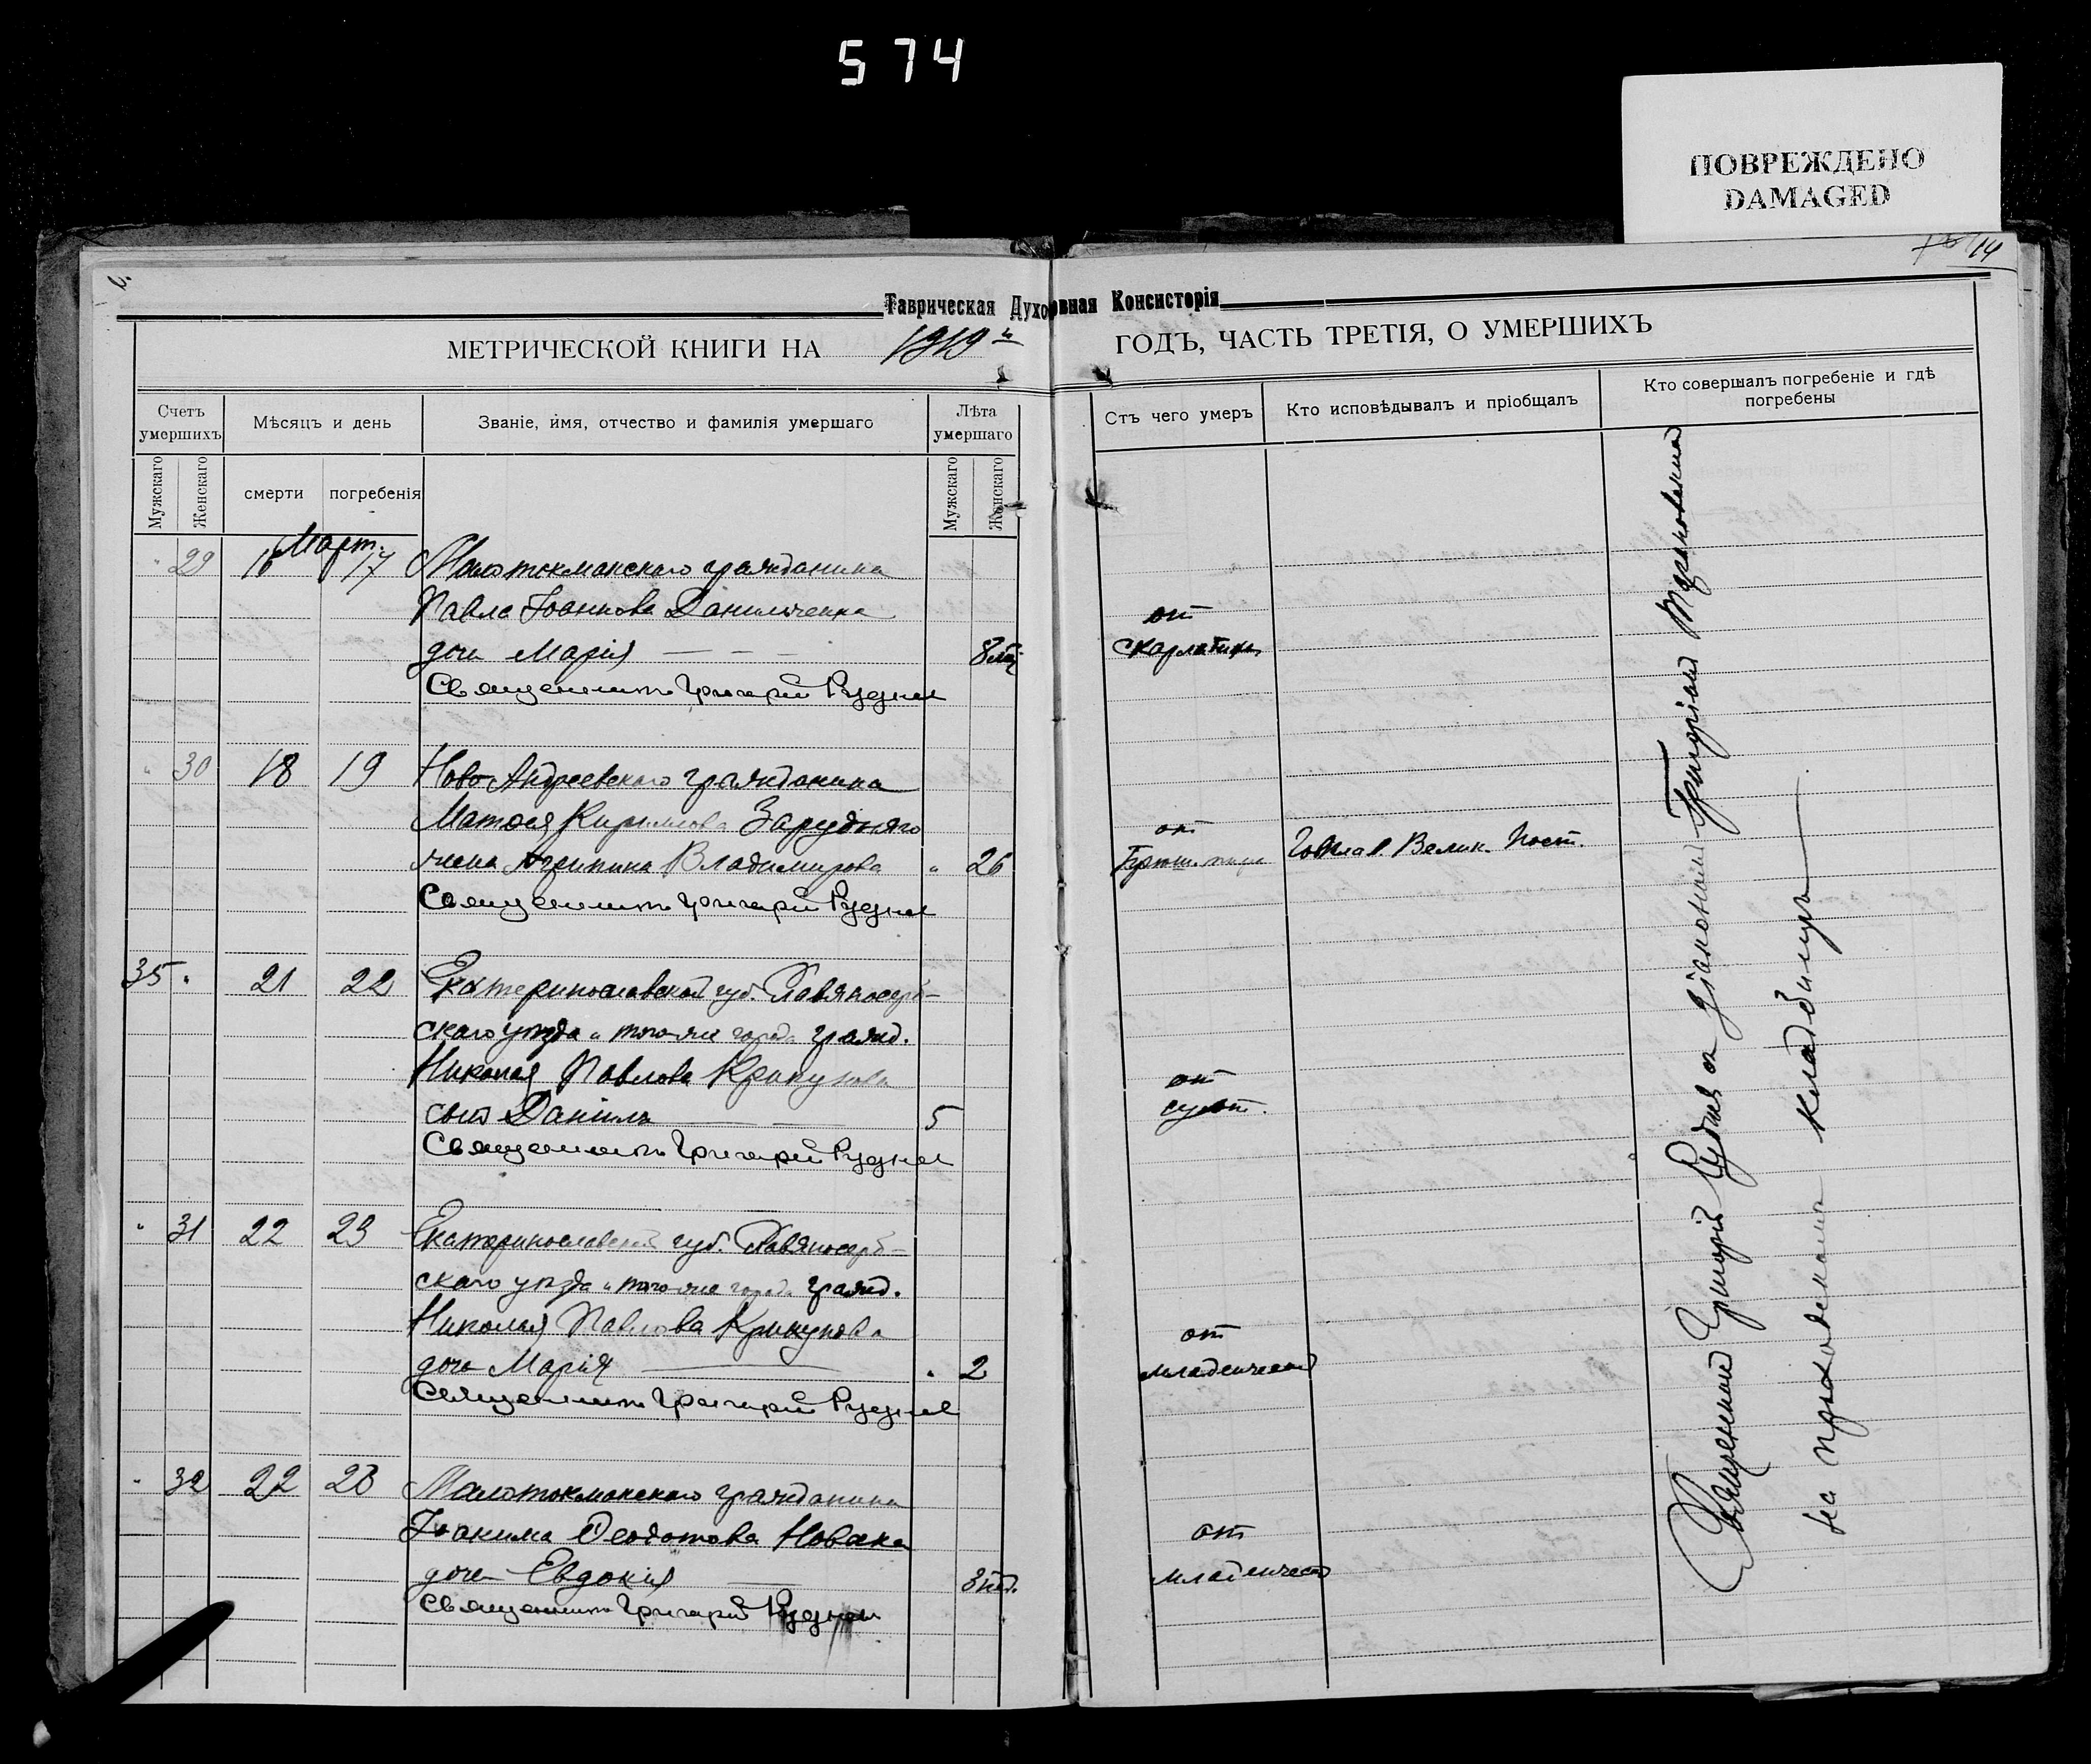 574
ПОВРЕЖДЕНО
DAMAGED
14
Таврическая Духовная Консисторія
МЕТРИЧЕСКОЙ КНИГИ НА 1919 й ГОДЪ, ЧАСТЬ ТРЕТІЯ, О УМЕРШИХЪ
Счетъ умершихъ
Мѣсяцъ и день
Званіе, имя, отчество и фамилія умершаго
Лѣта умершаго
Стъ чего умеръ
Кто исповѣдывалъ и пріобщалъ
Кто совершалъ погребеніе и гдѣ погребены
Мужскаго
Женскаго
смерти
погребенія
Мужскаго
Женскаго
Март.
" 29 16 17 Малотокмакскаго гражданина
Павла Іоаннова Данильченка
дочь Марія 8
от
скарлатины
Священникъ Григорій Руднев
" 30 18 19 Ново-Андреевскаго гражданина
Матѳея Кириллова Зарудняго
жена Агрипина Владимирова " 26
от
Брюш. тифа
Говѣла В. Велик. Пост.
Священникъ Григорій Руднев
35 " 21 22 Екатеринославской губ. Славяносерб-
скаго уѣзда и того-же города гражд.
Николая Павлова Крикунова
сынъ Даніилъ 5
от
Священникъ Григорій Руднев
" 31 22 23 Екатеринославской губ. Славяносерб-
скаго уѣзда и того-же города гражд.
Николая Павлова Крикунова
дочь Марія " 2
от
младенческой
Священникъ Григорій Руднев
" 32 22 23 Малотокмакскаго гражданина
Іоакима Ѳеодотова Новака
дочь Евдокія 3 нед.
от
младенческ
Священникъ Григорій Руднев
Священникъ Григорій Руднев съ діакономъ Григоріемъ Тарановскимъ
на приходскомъ кладбищѣ